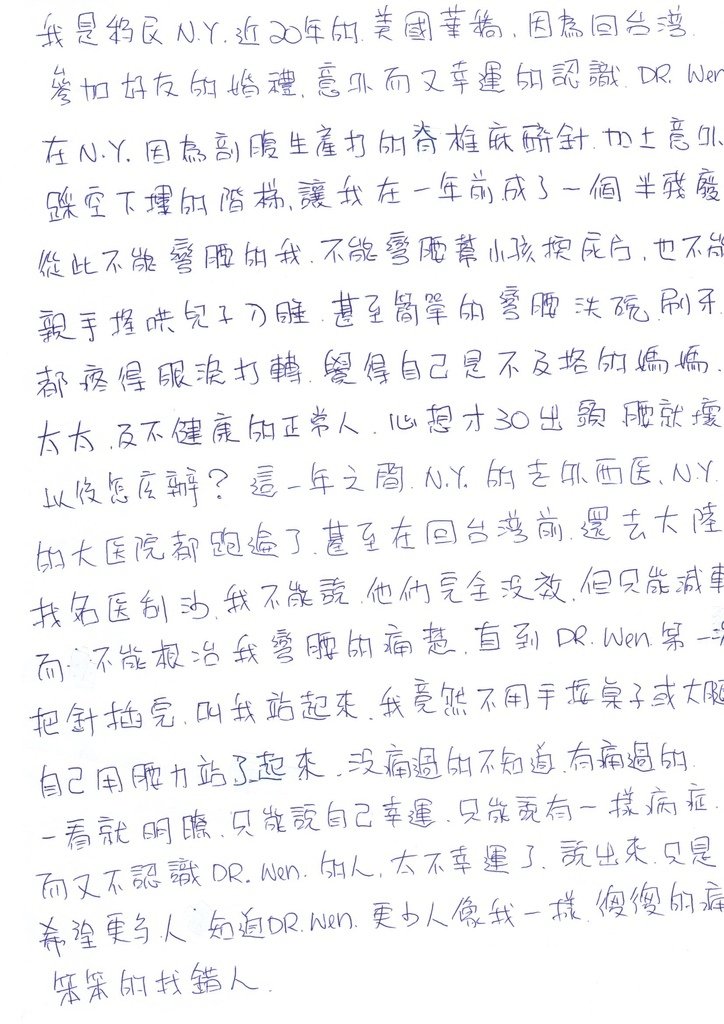 我是移民 N.Y. 近20年的 美國華橋, 因為回台灣
參加好友的婚禮, 意外而又幸運的認識 DR. Wen
在 N.Y. 因為剖腹生產打的脊椎麻醉針. 加上意外
踩空下埋的階梯, 讓我在一年前成了一個半殘廢
從此不能彎腰的我. 不能彎腰幫小孩換尿片, 也不能
親手 哄兒子 睡. 甚至簡單的彎腰洗碗. 刷牙
都疼得眼淚打轉. 覺得自己是不及格的媽媽.
太太, 及不健康的正常人. 心想才30出頭 腰就壞
以後怎広辦? 這一年之間. N.Y. 的老外西医、N.Y.
的大医院都跑遍了. 甚至在回台灣前. 還去大陸
找名医刮沙. 我不能說. 他們完全没效. 但只能減輕
而 不能根治我彎腰的痛楚. 直到 DR. Wen. 第一次
把針插完. 叫我站起來. 我竟然不用手撐桌子或大腿
自己用腰力站了起來. 没痛過的不知道. 有痛過的.
一看就明瞭. 只能說自己幸運. 只能說有一樣病症.
而又不認識 DR. Wen. 的人. 太不幸運了. 說出來. 只是
希望更多人 知道DR. Wen. 更少人像我一樣. 傻傻的痛
笨笨的找錯人.